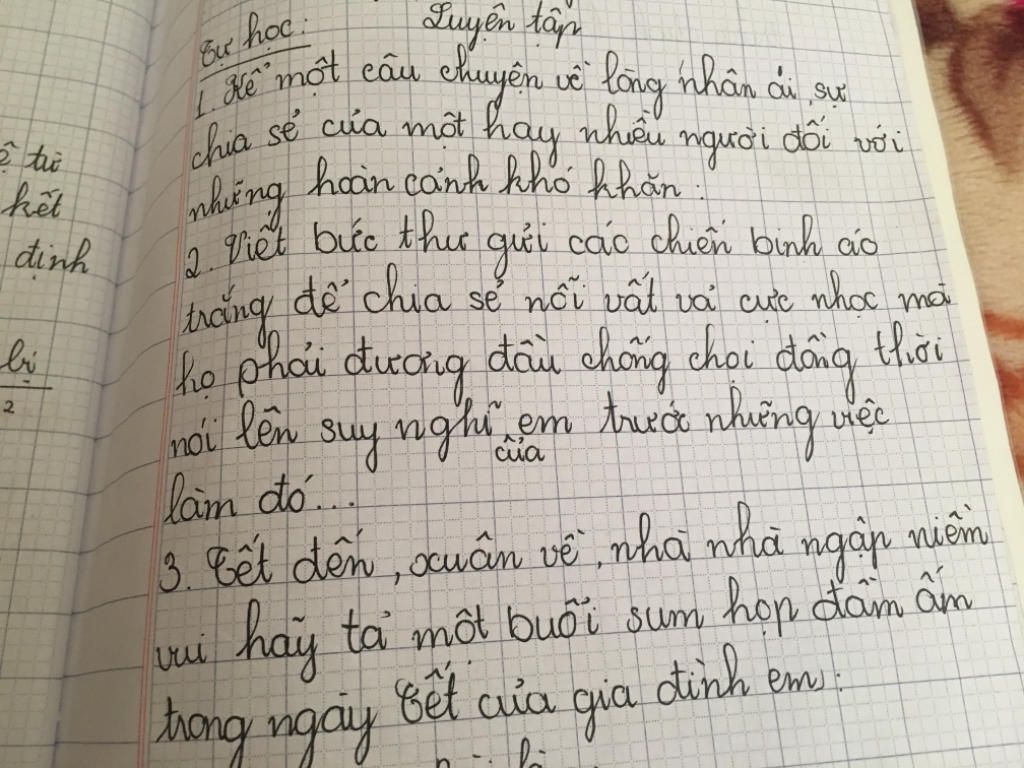 Luyện tập
Tự học:
1. Kể một câu chuyện về lòng nhân ái, sự
chia sẻ của một hay nhiều người đối với
những hoàn cảnh khó khăn.
2. Viết bức thư gửi các chiến binh áo
trắng để chia sẻ nỗi vất vả cực nhọc mà
họ phải đương đầu chống chọi đồng thời
nói lên suy nghĩ em trước những việc
của
làm đó...
3. Tết đến, xuân về, nhà nhà ngập niềm
vui hãy tả một buổi sum họp đầm ấm
trong ngày Tết của gia đình em.
ệ từ
kết
định
2